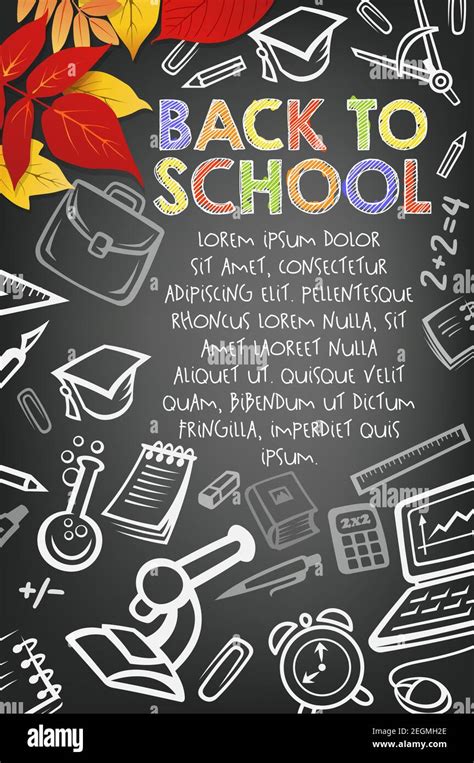 BACK TO
SCHOOL
LOREM IPSUM DOLOR
SIT AMET, CONSECTETUR
ADIPISCING ELIT. PHASELLUS
RHONCUS LOREM NULLA, SIT
AMET LAOREET NULLA
ALIQUET UT. QUISQUE VELIT
QUAM, BIBENDUM UT TORTOR
FRINGILLA, IMPERDIET QUIS
IPSUM.
2+2=4
2x2
+/-
alamy
alamy
alamy
Image ID: 2EGMH2E
www.alamy.com